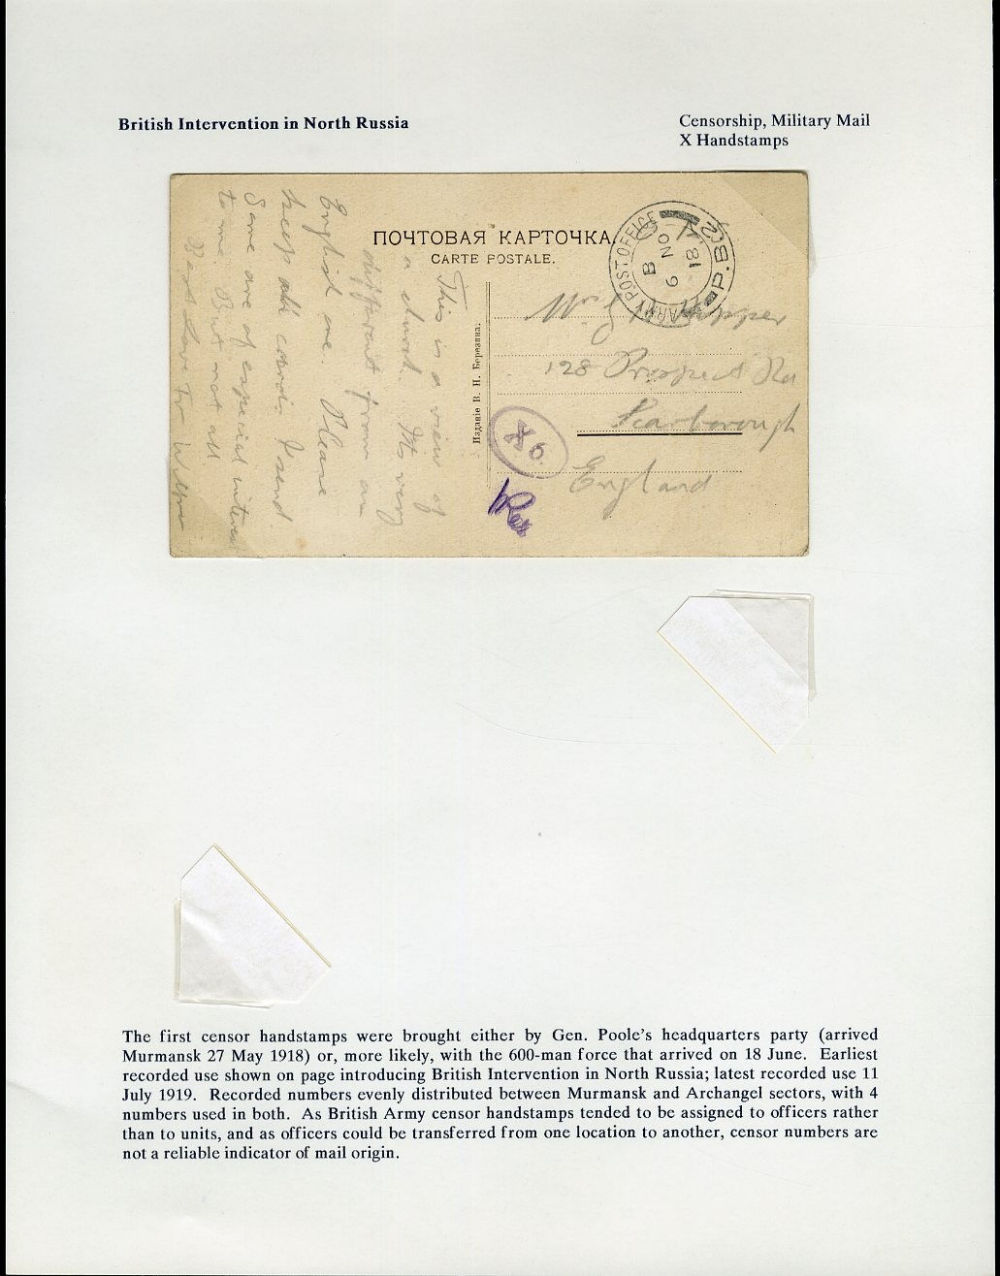 British Intervention in North Russia
Censorship, Military Mail
X Handstamps
ПОЧТОВАЯ КАРТОЧКА.
CARTE POSTALE.
ARMY POST OFFICE
P.B.2
B
9 NO
18
Изданіе В. Н. Березина.
This is a view of
a church. Its very
different from an
English one. Please
keep all cards I send
Some are of especial interest
to me. But not all
Best Love Fr
Mr
128 Prospect Rd
Scarborough
England
X6
The first censor handstamps were brought either by Gen. Poole's headquarters party (arrived
Murmansk 27 May 1918) or, more likely, with the 600-man force that arrived on 18 June. Earliest
recorded use shown on page introducing British Intervention in North Russia; latest recorded use 11
July 1919. Recorded numbers evenly distributed between Murmansk and Archangel sectors, with 4
numbers used in both. As British Army censor handstamps tended to be assigned to officers rather
than to units, and as officers could be transferred from one location to another, censor numbers are
not a reliable indicator of mail origin.